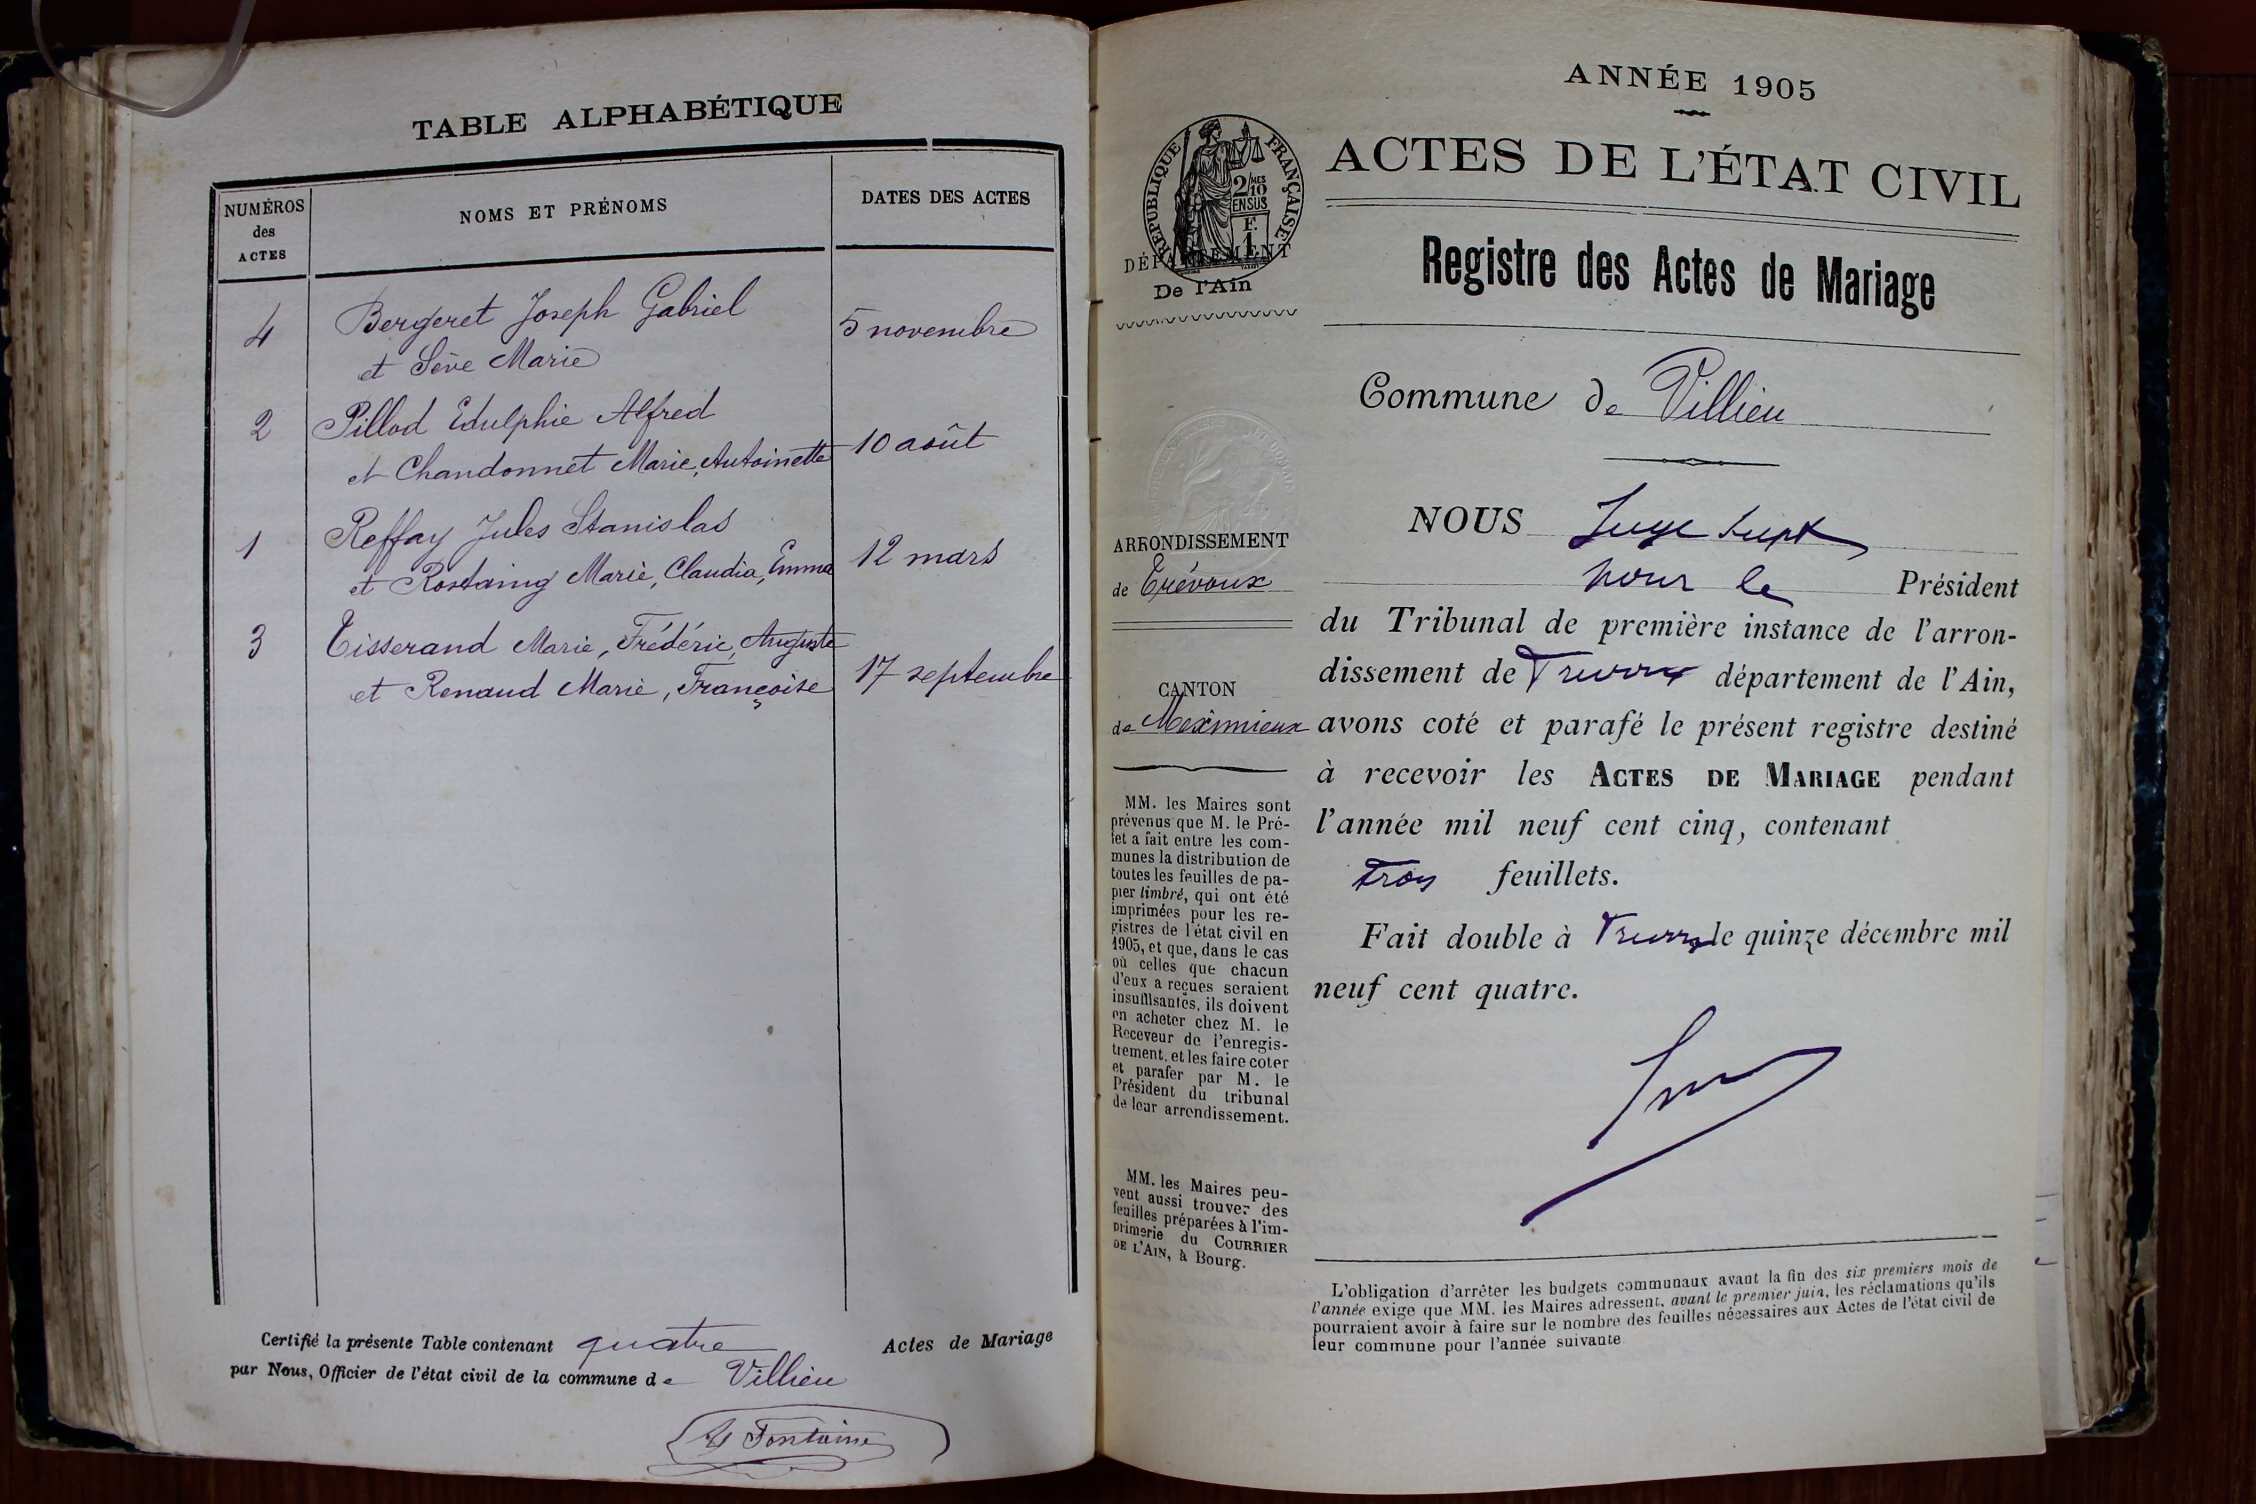 TABLE ALPHABÉTIQUE
NUMÉROS
des
ACTES
NOMS ET PRÉNOMS
DATES DES ACTES
4
Bergeret Joseph Gabriel
et Sève Marie
5 novembre
2
Pillod Edulphie Alfred
et Chandonnet Marie, Antoinette
10 août
1
Reffay Jules Stanislas
et Rostaing Marie, Claudia, Emma
12 mars
3
Tisserand Marie, Frédéric, Auguste
et Renaud Marie, Françoise
17 septembre
Certifié la présente Table contenant quatre Actes de Mariage
par Nous, Officier de l'état civil de la commune de Villieu
Fontaine
ANNÉE 1905
RÉPUBLIQUE FRANÇAISE
2/10MES
EN SUS
F.
1
ACTES DE L'ÉTAT CIVIL
DÉPARTEMENT
De l'Ain
Registre des Actes de Mariage
Commune de Villieu
ARRONDISSEMENT
de Trévoux
CANTON
de Meximieux
MM. les Maires sont
prévenus que M. le Pré-
fet a fait entre les com-
munes la distribution de
toutes les feuilles de pa-
pier timbré, qui ont été
imprimées pour les re-
gistres de l'état civil en
1905, et que, dans le cas
où celles que chacun
d'eux a reçues seraient
insuffisantes, ils doivent
en acheter chez M. le
Receveur de l'enregis-
trement, et les faire coter
et parafer par M. le
Président du tribunal
de leur arrondissement.
MM. les Maires peu-
vent aussi trouver des
feuilles préparées à l'im-
primerie du COURRIER
DE L'AIN, à Bourg.
NOUS Juge supt
pour le Président
du Tribunal de première instance de l'arron-
dissement de Trévoux département de l'Ain,
avons coté et parafé le présent registre destiné
à recevoir les ACTES DE MARIAGE pendant
l'année mil neuf cent cinq, contenant
trois feuillets.
Fait double à Trévoux le quinze décembre mil
neuf cent quatre.
L'obligation d'arrêter les budgets communaux avant la fin des six premiers mois de
l'année exige que MM. les Maires adressent, avant le premier juin, les réclamations qu'ils
pourraient avoir à faire sur le nombre des feuilles nécessaires aux Actes de l'état civil de
leur commune pour l'année suivante